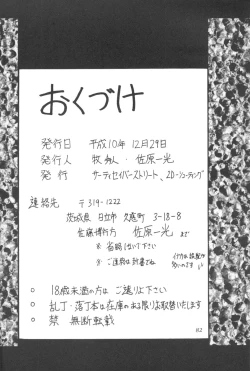 おくづけ
発行日 平成10年 12月29日
発行人 牧 人・佐原一光
発行 サーティセイバーストリート、2D-シューティング
連絡先 〒319-1222
茨城県 日立市 久慈町 3-18-8
佐藤博行方 佐原一光 まで
※ 省略しないで下さい
※ ご連絡は封書でね
○ 18歳未満の方は ご遠りょ下さい
○ 乱丁・落丁本は在庫のある限りお取替いたします
○ 禁 無断転載